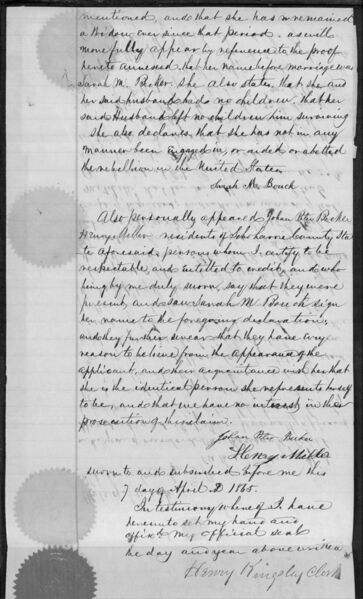 mentioned, and that she has remained
a Widow ever since that period, as will
more fully appear by reference to the proof
hereto annexed, that her name before marriage was
Sarah M. Becker. She also states, that she and
her said husband had no children, that her
said Husband left no children him surviving
She also declares, that she has not in any
manner been engaged in, or aided or abetted
the rebellion in the United States.
Sarah M. Bouck
Also personally appeared Johan Peter Becker
Henry Miller residents of Schoharrie County Sta
te aforesaid, persons whom I certify to be
respectable, and entitled to credit, and who
being by me duly sworn, say that they were
present, and saw Sarah M Bouck sign
her name to the foregoing declaration;
and they further swear that they have every
reason to believe from the appearance of the
applicant, and their acquaintance with her that
she is the identical person she represents herself
to be, and that we have no interest in the
prosecution of this claim.
Johan Peter Becker
Henry Miller
sworn to and subscribed before me this
7 day of April 1865.
In testimony whereof I have
hereunto set my hand and
affixed my official seal
the day and year above written
Henry Kingsley Clerk